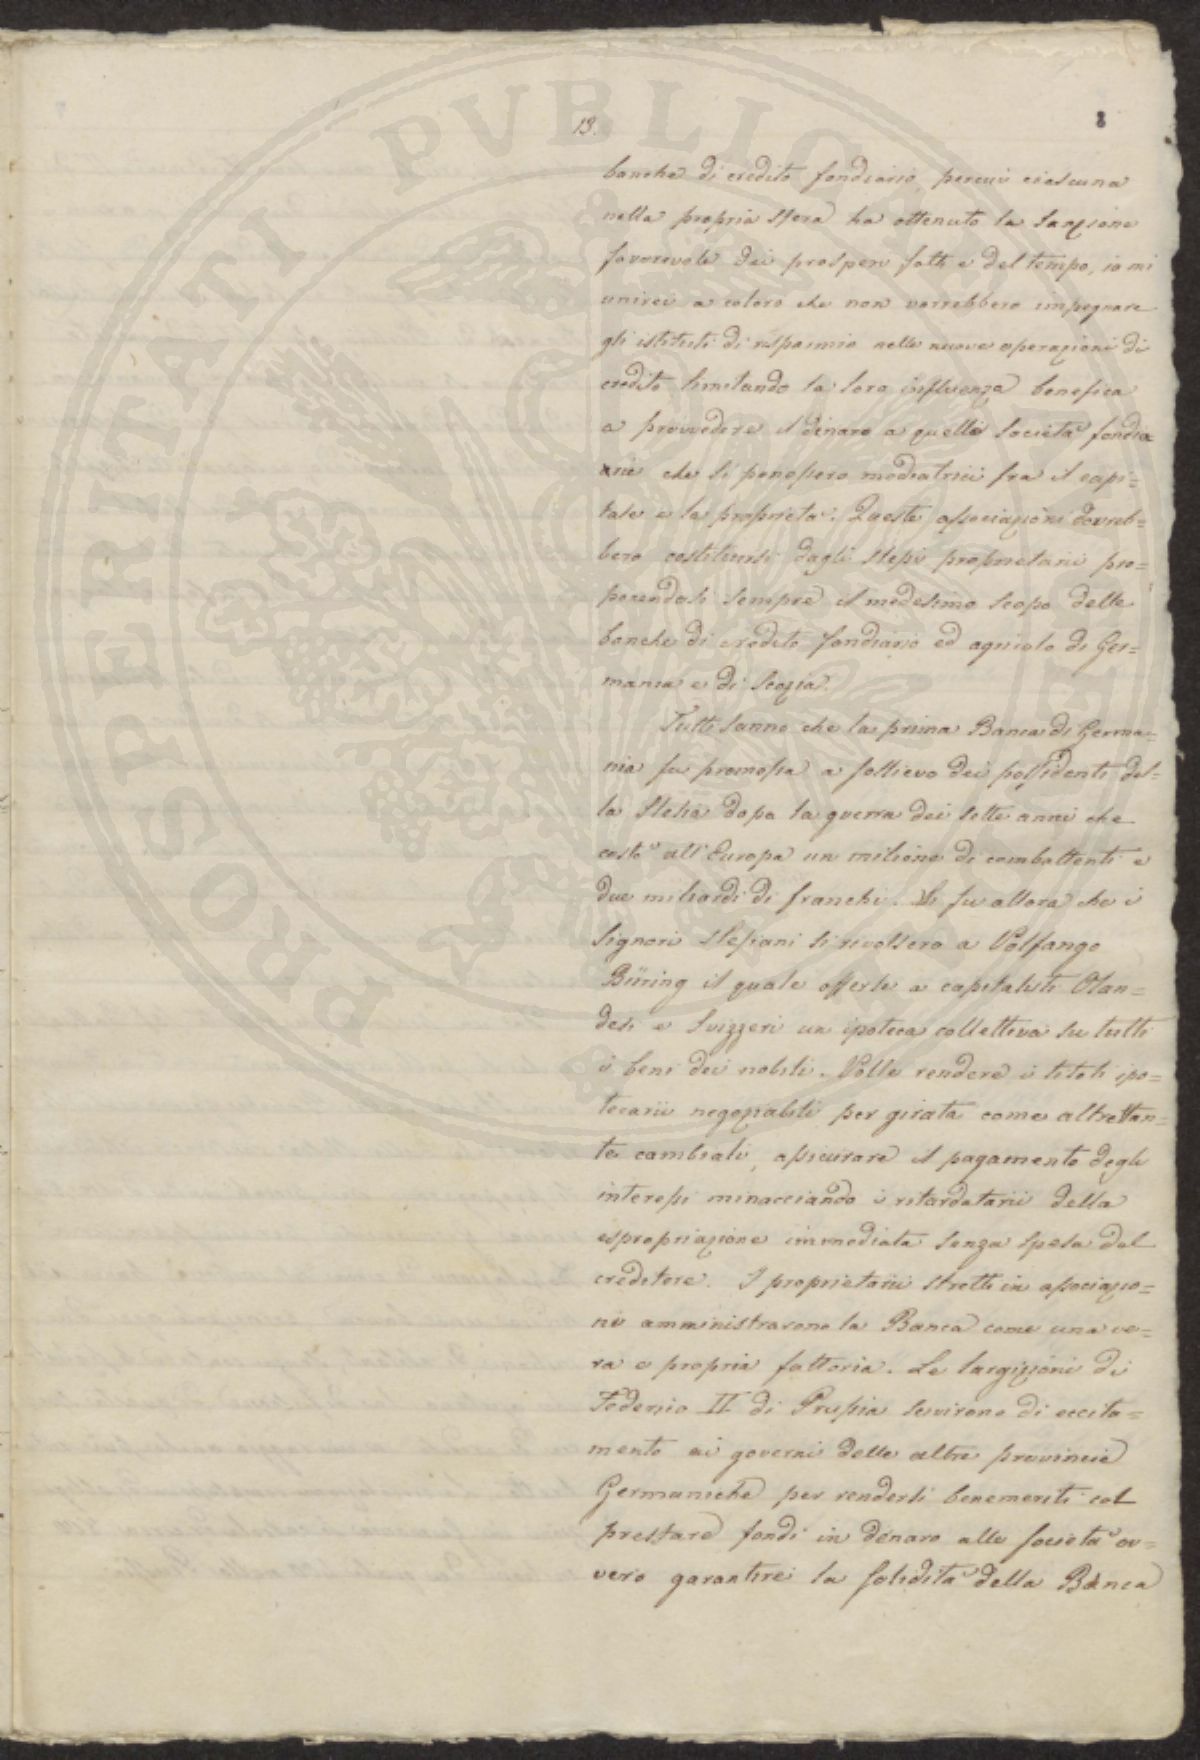 13.
8
banche di credito fondiario, percui ciascuna
nella propria sfera ha ottenuto la sanzione
favorevole dei prosperi fatti e del tempo, io mi
unirei a coloro che non vorrebbero impegnare
gli istituti di risparmio nelle nuove operazioni di
credito limitando la loro influenza benefica
a provvedere il denaro a quelle società fondia
rie che si ponessero mediatrici fra il capi=
tale e la proprietà. Queste associazioni dovreb=
bero costituirsi dagli stessi proprietarii pro=
ponendosi sempre il medesimo scopo delle
banche di credito fondiario ed agricolo di Ger=
mania e di Scozia.
Tutti sanno che la prima Banca di Germa=
nia fu promossa a sollievo dei possidenti del=
la Slesia dopo la guerra dei sette anni che
costò all'Europa un milione di combattenti e
due miliardi di franchi. Si fu allora che i
Signori Slesiani si rivolsero a Volfango
Büring il quale offerse a capitalisti Olan=
desi e Svizzeri un ipoteca collettiva su tutti
i beni dei nobili. Volle rendere i titoli ipo=
tecarii negoziabili per girata come altrettan=
te cambiali, assicurare il pagamento degli
interessi minacciando i ritardatarii della
espropriazione immediata senza spesa del
creditore. I proprietarii stretti in associazio=
ne amministrarono la Banca come una ve=
ra e propria fattoria. Le largizioni di
Federico II di Prussia servirono di eccita=
mento ai governi delle altre provincie
Germaniche per rendersi benemeriti col
prestare fondi in denaro alle società ov=
vero garantirei la solidità della Banca
PROSPERITATI PUBLICAE